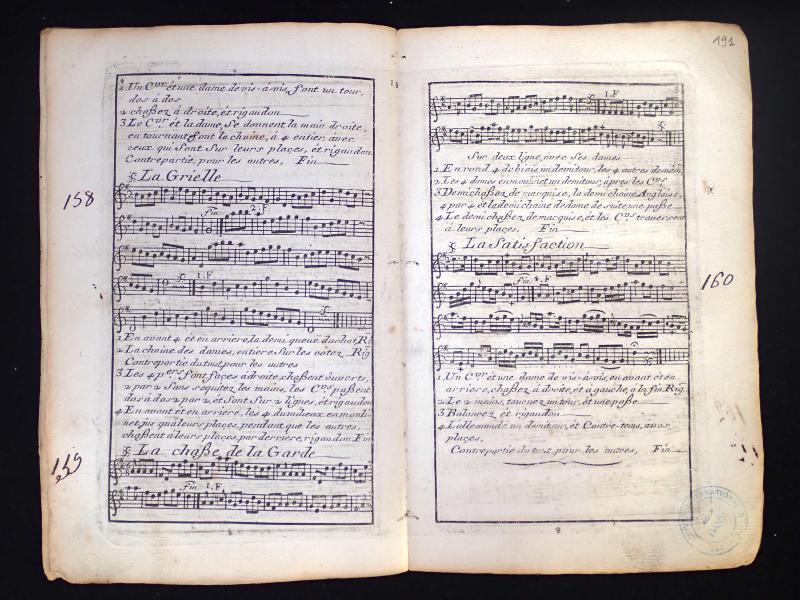 1. Un Cver et une dame de vis-à-vis, font un tour,
dos à dos
2 chaßez à droite, et rigaudon
3 Le Cver et la dame, Se donnent la main droite,
en tournant font la chaine, à 4 entier, avec
ceux qui Sont Sur leurs plaçes, et rigaudon
Contrepartie pour les autres, Fin
La Grielle
158
fin 2.F
1.F
1 En avant 4 et en arriere, la demi queue du chat, Ri
2 La chaine des dames, entiere Sur les cotez, Rig
Contrepartie du tout pour les autres
3 Les 4 pers font façes à droite, chaßent ouverts,
2 par 2 Sans quitez les mains, les Cvrs paßent
dos à dos 2 par 2, et Sont Sur 2 lignes, et rigaudon
4 En avant et en arriere, les 4 du milieux en mouli-
net jus qu'à leurs plaçes, pendant que les autres,
chaßent à leurs plaçes, par derriere, rigaudon Fin
La chaße de la Garde
159
Fin 1.F
191
1.F
Sur deux ligne, avec Ses dames
1 En rond 4 de biais un demi tour, les 4 autres de mém
2. Les 4 dames en moulinet un demi tour, après les Cvrs
3 Demi chaßez de marquise, la demi chaine Anglaise,
4 par 4 et la demi chaine de dame de suite, une paße
4 Le demi chaßez de marquise, et les Cvrs traversent
à leurs plaçes, Fin
La Satisfaction
160
fin 1.F
1 Un Cver et une dame de vis-à-vis, en avant et en
arriere, chaßez à droite, et à gauche, à la fin Rig
2 Le 2 mains, tournez un tour, et une paße
3 Balancez et rigaudon
4 L'allemande un demi tour, et Contre-tems, a vos
plaçes,
Contrepartie du tout, pour les autres, Fin